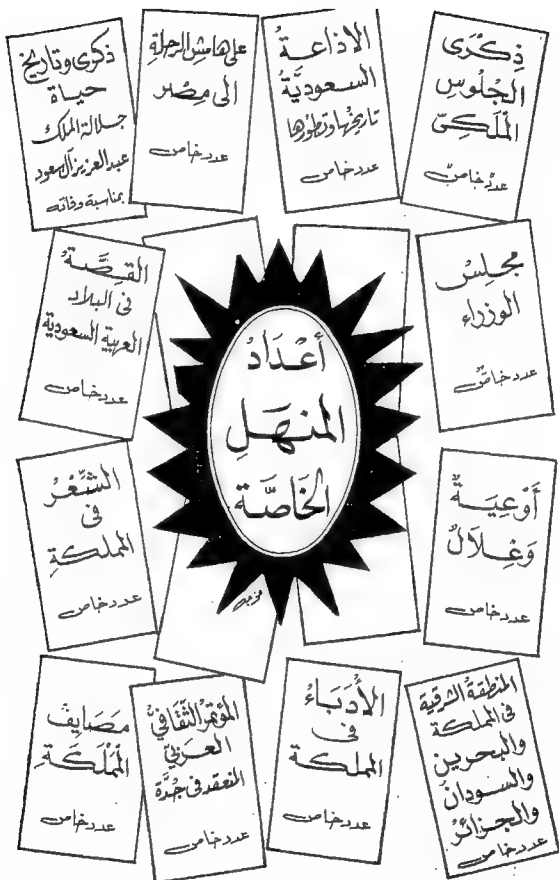 ذِكْرَى
الجُلُوسِ
المَلَكِيّ
عدد خاصّ
الاذاعة
السعودية
تاريخها وتطورها
عدد خاص
على هامش الرحلة
الى مصر
عدد خاص
ذكرى وتاريخ
حياة
جلالة الملك
عبد العزيز آل سعود
بمناسبة وفاته
مجلس
الوزراء
عدد خاصّ
القصّة
فى البلاد
العربية السعودية
عدد خاص
أعدَادُ
المنهَلِ
الخَاصَّة
أَوْعِيَةٌ
وَغِلَالٌ
عدد خاص
الشِّعْرُ
فى
المملكةِ
عدد خاص
المنطقة الشرقية
فى المملكة
والبحرين
والسودان
والجزائر
عدد خاص
الأُدَبَاءُ
فى
المملكة
عدد خاص
المؤتمر الثقافيّ
العربيّ
المنعقد فى جُدَّة
عدد خاص
مَصَايِفُ
المَمْلَكَةِ
عدد خاص